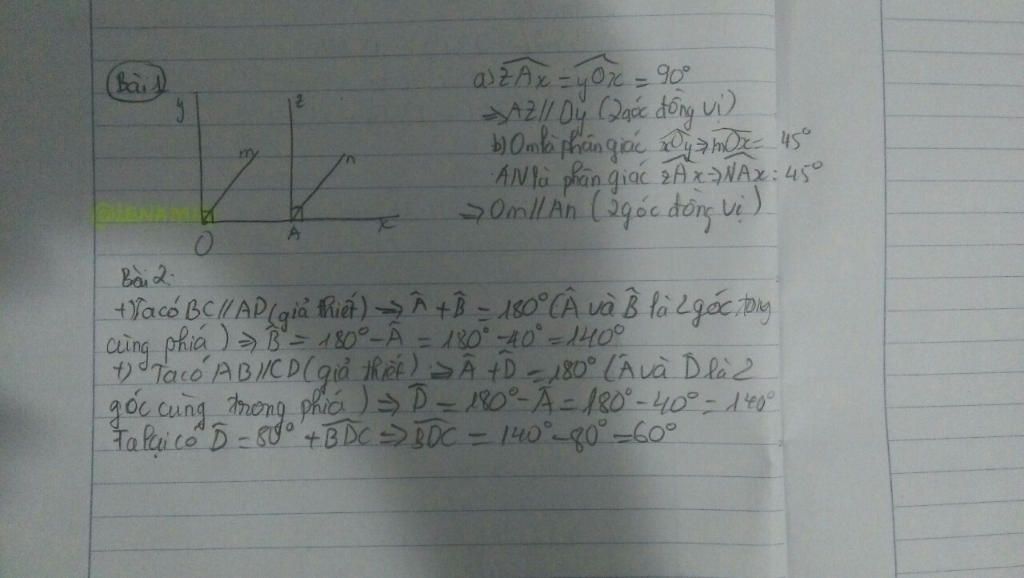 Bài 1
y
z
m
n
O
A
x
a) zAx = yOx = 90°
⇒ AZ // Oy (2 góc đồng vị)
b) Om là phân giác xOy ⇒ mOx = 45°
AN là phân giác zAx ⇒ NAx : 45°
⇒ Om // An (2 góc đồng vị)
Bài 2:
+) Ta có BC // AD (giả thiết) ⇒ Â + B̂ = 180° (Â và B̂ là 2 góc trong
cùng phiá) ⇒ B̂ = 180° - Â = 180° - 40° = 140°
+) Ta có AB // CD (giả thiết) ⇒ Â + D̂ = 180° (Â và D̂ là 2
góc cùng trong phiá) ⇒ D̂ = 180° - Â = 180° - 40° = 140°
Ta lại có D̂ = 80° + BDC ⇒ BDC = 140° - 80° = 60°